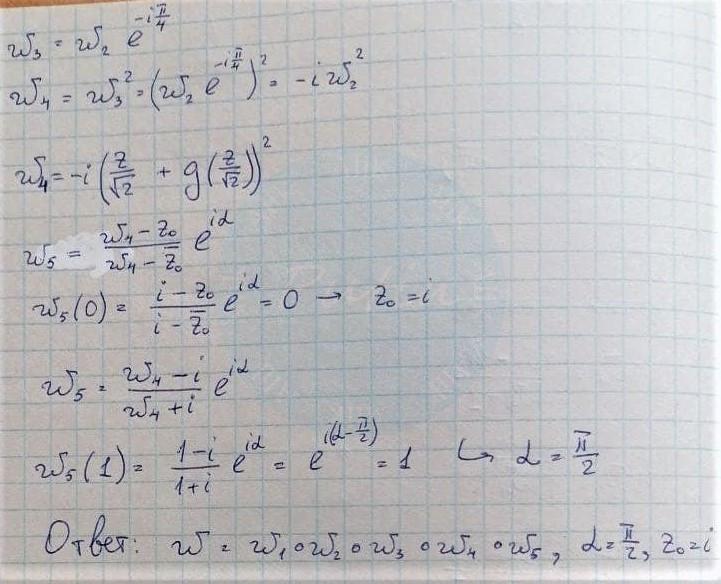 w₃ = w₂ e^{-iπ/4}
w₄ = w₃² = (w₂ e^{-iπ/4})² = -i w₂²
w₄ = -i (z/√2 + g(z/√2))²
w₅ = (w₄ - z₀)/(w₄ - z̄₀) e^{iα}
w₅(0) = (i - z₀)/(i - z̄₀) e^{iα} = 0 → z₀ = i
w₅ = (w₄ - i)/(w₄ + i) e^{iα}
w₅(1) = (1-i)/(1+i) e^{iα} = e^{i(α-π/2)} = 1 ↪ α = π/2
Ответ: w = w₁∘w₂∘w₃∘w₄∘w₅, α = π/2, z₀ = i